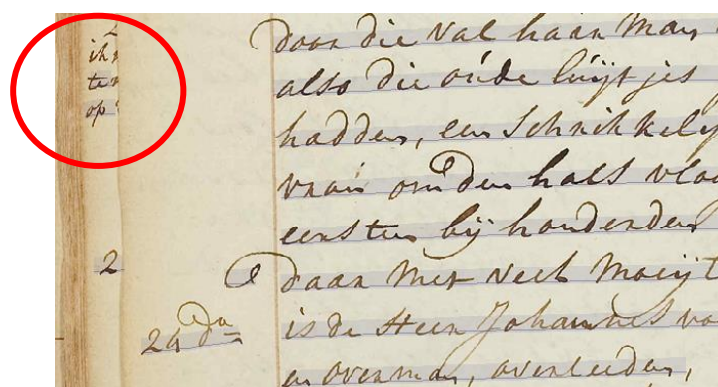 ik
te
op
door die val haar man
also die oúde lúijtjes
hadden, een schrikkely
vrouw om den hals vloo
eersten bij honderden
2
daar met Neef Moeijt
24 do is de Heer Johannes va
en overman, overleeden,